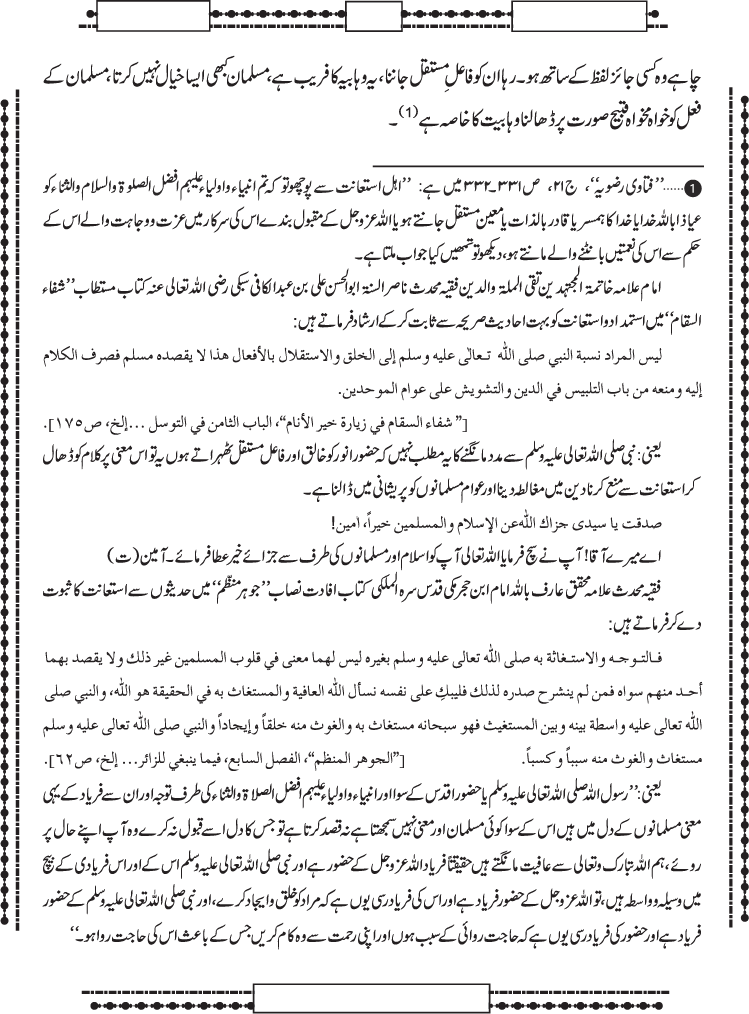 چاہے وہ کسی جائز لفظ کے ساتھ ہو۔ رہا ان کو فاعلِ مستقل جاننا، یہ وہابیہ کا فریب ہے، مسلمان کبھی ایسا خیال نہیں کرتا، مسلمان کے
فعل کو خواہ مخواہ قبیح صورت پر ڈھالنا وہابیت کا خاصہ ہے (1)۔
1......’’فتاوی رضویہ‘‘، ج۲۱، ص ۳۳۱۔۳۳۲ میں ہے: ’’اہل استعانت سے پوچھو تو کہ تم انبیاء واولیاء علیہم افضل الصلوۃ والسلام والثناء کو
عیاذ اباللہ خدا یا خدا کا ہمسر یا قادر بالذات یا معین مستقل جانتے ہو یا اللہ عزوجل کے مقبول بندے اس کی سرکار میں عزت ووجاہت والے اس کے
حکم سے اس کی نعمتیں بانٹنے والے مانتے ہو، دیکھو تو تمھیں کیا جواب ملتا ہے۔
امام علامہ خاتمۃ المجتہدین تقی الملۃ والدین فقیہ محدث ناصر السنۃ ابوالحسن علی بن عبد الکافی سبکی رضی اللہ تعالی عنہ کتاب مستطاب ’’شفاء
السقام‘‘ میں استمداد واستعانت کو بہت احادیث صریحہ سے ثابت کر کے ارشاد فرماتے ہیں:
ليس المراد نسبة النبي صلى الله تـعالى عليه وسلم إلى الخلق والاستقلال بالأفعال هذا لا يقصده مسلم فصرف الكلام
إليه ومنعه من باب التلبيس في الدين والتشويش على عوام الموحدين.
[”شفاء السقام في زيارة خير الأنام“، الباب الثامن في التوسل ...إلخ، ص١٧٥].
یعنی: نبی صلی اللہ تعالی علیہ وسلم سے مدد مانگنے کا یہ مطلب نہیں کہ حضور انور کو خالق اور فاعل مستقل ٹھہراتے ہوں یہ تو اس معنی پر کلام کو ڈھال
کر استعانت سے منع کرنا دین میں مغالطہ دینا اور عوام مسلمانوں کو پریشانی میں ڈالنا ہے۔
صدقت يا سيدى جزاك الله عن الإسلام والمسلمين خيراً، اٰمين!
اے میرے آقا! آپ نے سچ فرمایا اللہ تعالی آپ کو اسلام اور مسلمانوں کی طرف سے جزائے خیر عطا فرمائے۔ آمین (ت)
فقیہ محدث علامہ محقق عارف باللہ امام ابن حجر مکی قدس سرہ الملکی کتاب افادت نصاب ’’جوہر منظّم‘‘ میں حدیثوں سے استعانت کا ثبوت
دے کر فرماتے ہیں:
فـالتـوجـه والاستـغاثة به صلى الله تعالى عليه وسلم بغيره ليس لهما معنى في قلوب المسلمين غير ذلك ولا يقصد بهما
أحـد منهم سواه فمن لم ينشرح صدره لذلك فليبك على نفسه نسأل الله العافية والمستغاث به في الحقيقة هو الله، والنبي صلى
الله تعالى عليه واسطة بينه وبين المستغيث فهو سبحانه مستغاث به والغوث منه خلقاً وإيجاداً والنبي صلى الله تعالى عليه وسلم
مستغاث والغوث منه سبباً وكسباً. [”الجوهر المنظم“، الفصل السابع، فيما ينبغي للزائر... إلخ، ص٦٢].
یعنی: ’’رسول اللہ صلی اللہ تعالی علیہ وسلم یا حضور اقدس کے سوا اور انبیاء واولیاء علیہم افضل الصلاۃ والثناء کی طرف توجہ اور ان سے فریاد کے یہی
معنی مسلمانوں کے دل میں ہیں اس کے سوا کوئی مسلمان اور معنی نہیں سمجھتا ہے نہ قصد کرتا ہے تو جس کا دل اسے قبول نہ کرے وہ آپ اپنے حال پر
روئے، ہم اللہ تبارک وتعالی سے عافیت مانگتے ہیں حقیقتاً فریاد اللہ عزوجل کے حضور ہے اور نبی صلی اللہ تعالی علیہ وسلم اس کے اور اس فریادی کے بیچ
میں وسیلہ وواسطہ ہیں، تو اللہ عزوجل کے حضور فریاد ہے اور اس کی فریاد رسی یوں ہے کہ مراد کو خلق وایجاد کرے، اور نبی صلی اللہ تعالی علیہ وسلم کے حضور
فریاد ہے اور حضور کی فریاد رسی یوں ہے کہ حاجت روائی کے سبب ہوں اور اپنی رحمت سے وہ کام کریں جس کے باعث اس کی حاجت روا ہو۔‘‘